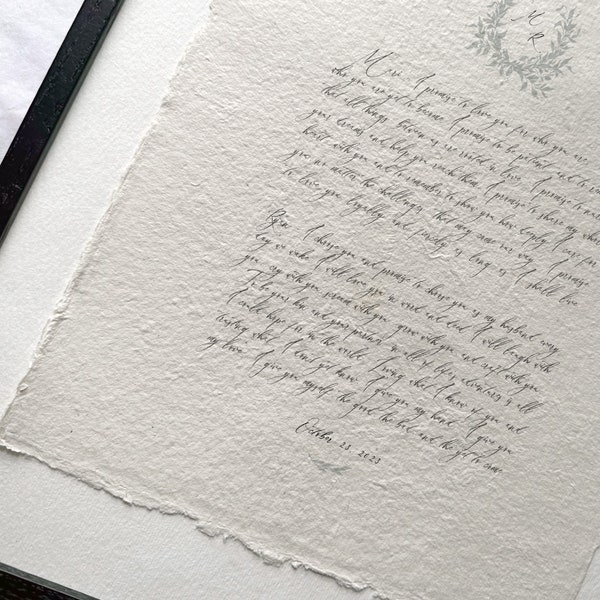 M
R
I promise to love you for who you are
who you are yet to become. I promise to be patient and to
that all things between us are rooted in love. I promise to
your dreams and help you reach them. I promise to share my whole
heart with you and to remember to show you how deeply I care for
you, no matter the challenges that may come our way. I promise
to love you loyally and fiercely as long as I shall live
Ryan I choose you and promise to choose you as my husband every
day we wake. I will love you in word and deed. I will laugh with
you, cry with you, scream with you, grow with you and craft with you
To be your and your partner in all of lifes adventures is all
I could hope for in the world. Loving what I know of you and
trusting what I dont yet know. I give you my hand. I give you
my love. I give you myself the good the bad and the yet to come
October 23 2023